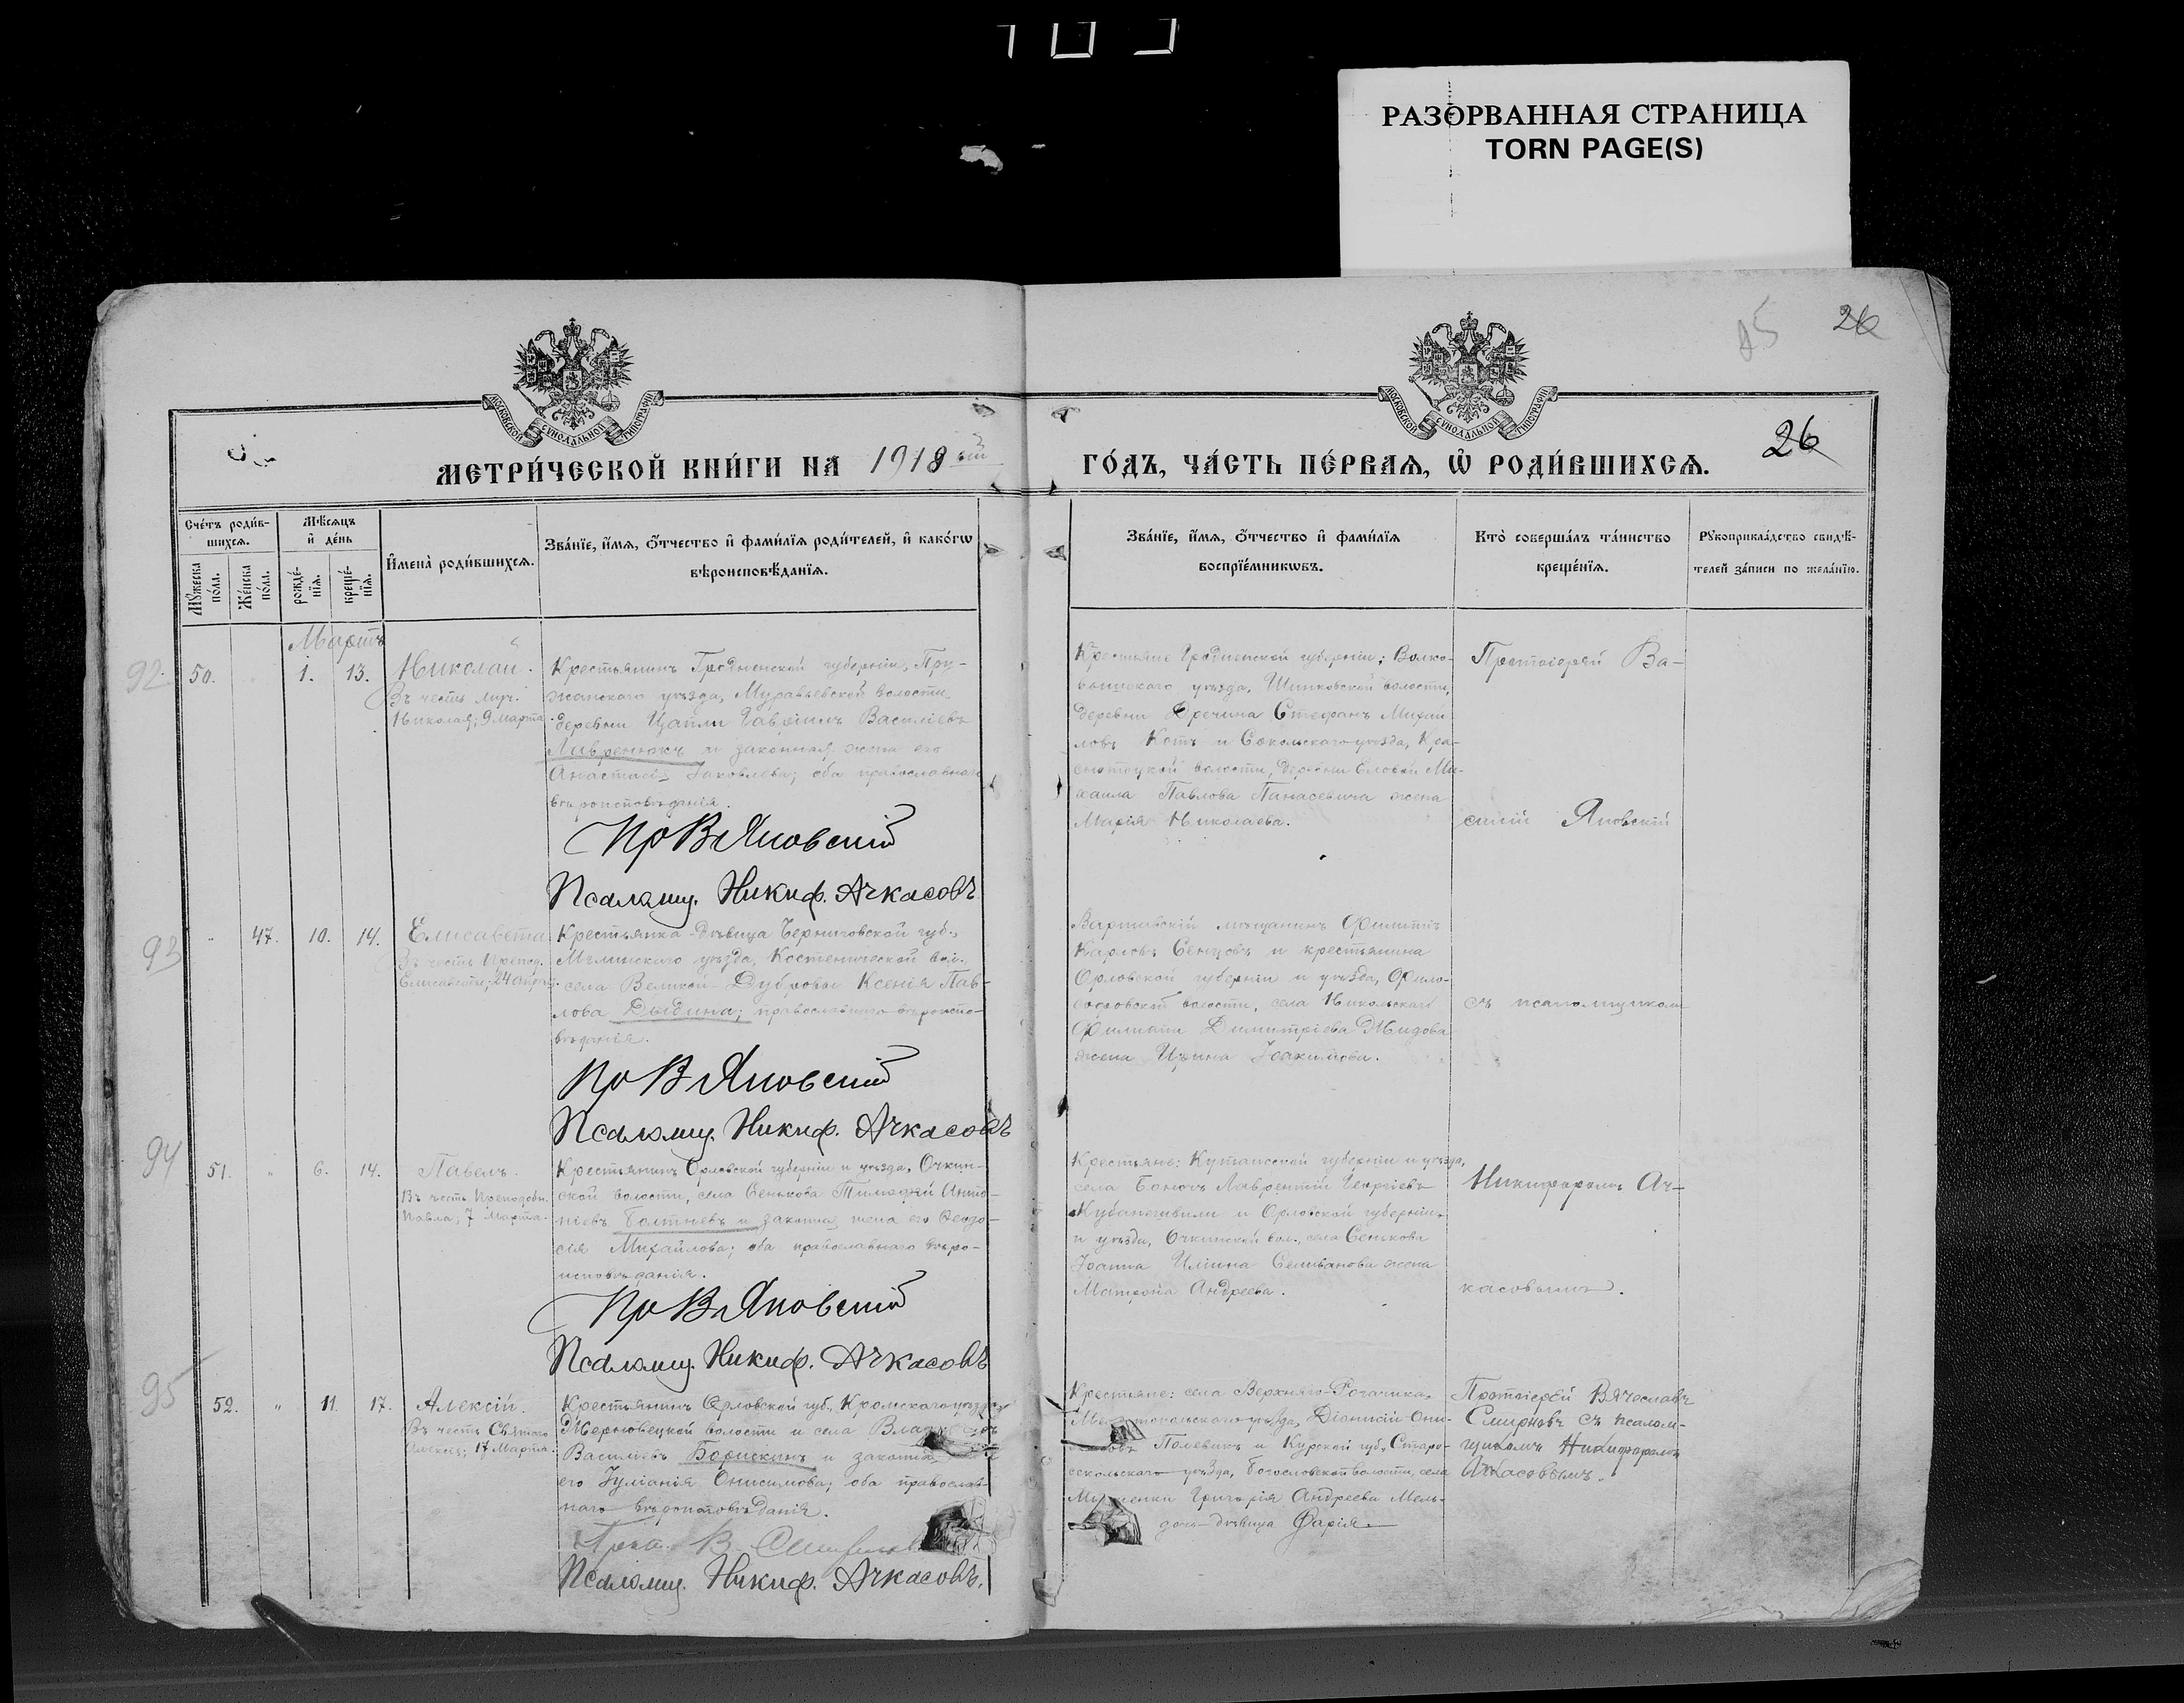 РАЗОРВАННАЯ СТРАНИЦА
TORN PAGE(S)
26
26
МОСКОВСКОЙ СѴНОДАЛЬНОЙ ТИПОГРАФІИ
МОСКОВСКОЙ СѴНОДАЛЬНОЙ ТИПОГРАФІИ
МЕТРИ́ЧЕСКОЙ КНИ́ГИ НА 1918 ый
ГО́ДЪ, ЧА́СТЬ ПЕ́РВАѦ, Ѡ҆ РОДИ́ВШИХСѦ.
Сче́тъ роди́в-
шихсѧ.
Мѣ́сѧцъ
и҆ де́нь
Мꙋ́жеска
по́ла.
Же́нска
по́ла.
рожде́-
нїѧ.
креще́-
нїѧ.
И҆мена̀ роди́вшихсѧ.
Зва́нїе, и҆́мѧ, ѻ҆́тчество и҆ фами́лїѧ роди́телей, и҆ како́гѡ
вѣроисповѣ́данїѧ.
Зва́нїе, и҆́мѧ, ѻ҆́тчество и҆ фами́лїѧ
воспрїе́мникѡвъ.
Кто̀ соверша́лъ та́инство
креще́нїѧ.
Рꙋкоприкла́дство свидѣ́-
телей за́писи по жела́нїю.
Мартъ
92. 50. 1. 13. Николай.
Въ честь муч.
Николая; 9 марта.
Крестьянинъ Гродненской губерніи, Пру-
жанскаго уѣзда, Муравьевской волости
деревни Гавріилъ Василіевъ
Лавренюкъ и законная жена его
Анастасія Іаковлева; оба православнаго
вѣроисповѣданія.
Пр В Яновскій
Псаломщ. Никиф. Ачкасовъ
Крестьяне Гродненской губерніи: Волко-
выскаго уѣзда, Шинковской волости,
деревни Стефанъ Михаи-
ловъ Котъ и Сокольскаго уѣзда, Кра-
волости, деревни Еловой Ми-
хаила Павлова Панасевича жена
Марія Николаева.
Протоіерей Ва-
силій Яновскій
93 " 47. 10. 14. Елисавета
Въ честь Препод.
Елисаветы; 24 апрѣл.
Крестьянка-дѣвица Черниговской губ.,
Мглинскаго уѣзда, Костеничской вол.,
села Великой-Дубровы Ксенія Пав-
лова Дыдина; православнаго вѣроиспо-
вѣданія.
Пр В Яновскій
Псаломщ. Никиф. Ачкасовъ
Варшавскій мѣщанинъ Филиппъ
Карловъ Сенцовъ и крестьянина
Орловской губерніи и уѣзда,
волости, села Никольскаго
Филиппа Димитріева
жена Ирина Іоакимова.
съ псаломщикомъ
94 51. " 6. 14. Павелъ.
Въ честь Преподобн.
Павла; 7 Марта.
Крестьянинъ Орловской губерніи и уѣзда, Очкин-
ской волости, села Сенькова Тимофей Анто-
ніевъ Болтневъ и законная жена его Ѳеодо-
сія Михайлова; оба православнаго вѣро-
исповѣданія.
Пр В Яновскій
Псаломщ. Никиф. Ачкасовъ
Крестьяне: Кутаисской губерніи и уѣзда,
села Лаврентій Георгіевъ
Кубанешвили и Орловской губерніи
и уѣзда, Очкинской вол., села Сенькова
Іоанна Иліина Селиванова жена
Матрона Андреева.
Никифоромъ Ач-
касовымъ.
95 52. " 11. 17. Алексій.
Въ честь Святаго
Алексія; 17 Марта.
Крестьянинъ Орловской губ., Кромскаго уѣзда,
волости и села
Василіевъ Борискинъ и законная
его Іуліанія Онисимова; оба православ-
наго вѣроисповѣданія.
Прот. В. Смирновъ
Псаломщ. Никиф. Ачкасовъ.
Крестьяне: села Верхняго-Рогачика,
уѣзда, Діонисій Они-
Полевикъ и Курской губ., Старо-
оскольскаго уѣзда, Богословской волости, села
Григорія Андреева Мель-
дочь-дѣвица Дарія.
Протоіерей Вячеславъ
Смирновъ съ псалом-
щикомъ Никифоромъ
Ачкасовымъ.